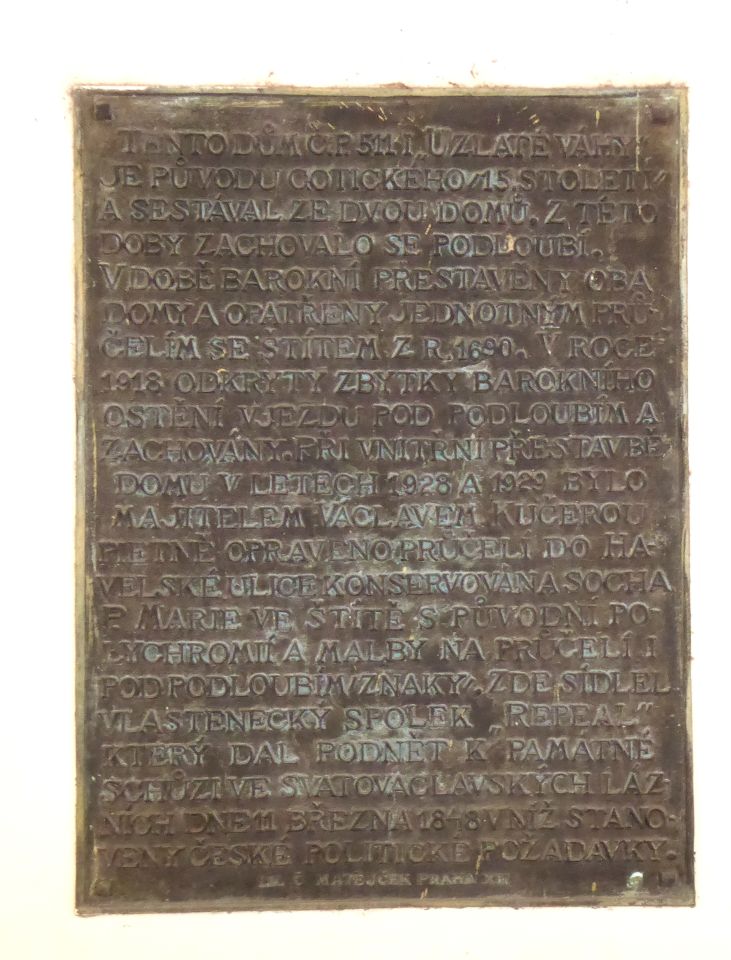 TENTO DŮM Č.P. 511-I „U ZLATÉ VÁHY“
JE PŮVODU GOTICKÉHO /15. STOLETÍ/
A SESTÁVAL ZE DVOU DOMŮ. Z TÉTO
DOBY ZACHOVALO SE PODLOUBÍ.
V DOBĚ BAROKNÍ PŘESTAVĚNY OBA
DOMY A OPATŘENY JEDNOTNÝM PRŮ-
ČELÍM SE ŠTÍTEM Z R. 1690. V ROCE
1918 ODKRYTY ZBYTKY BAROKNÍHO
OSTĚNÍ VJEZDU POD PODLOUBÍM A
ZACHOVÁNY. PŘI VNITŘNÍ PŘESTAVBĚ
DOMU V LETECH 1928 A 1929 BYLO
MAJITELEM VÁCLAVEM KUČEROU
PIETNĚ OPRAVENO PRŮČELÍ DO HA-
VELSKÉ ULICE KONSERVOVÁNA SOCHA
P. MARIE VE ŠTÍTĚ S PŮVODNÍ PO-
LYCHROMIÍ A MALBY NA PRŮČELÍ I
POD PODLOUBÍM /ZNAKY/. ZDE SÍDLEL
VLASTENECKÝ SPOLEK „REPEAL“
KTERÝ DAL PODNĚT K PAMÁTNÉ
SCHŮZI VE SVATOVÁCLAVSKÝCH LÁZ-
NÍCH DNE 11 BŘEZNA 1848 V NÍŽ STANO-
VENY ČESKÉ POLITICKÉ POŽADAVKY.
Č MATĚJČEK PRAHA XII